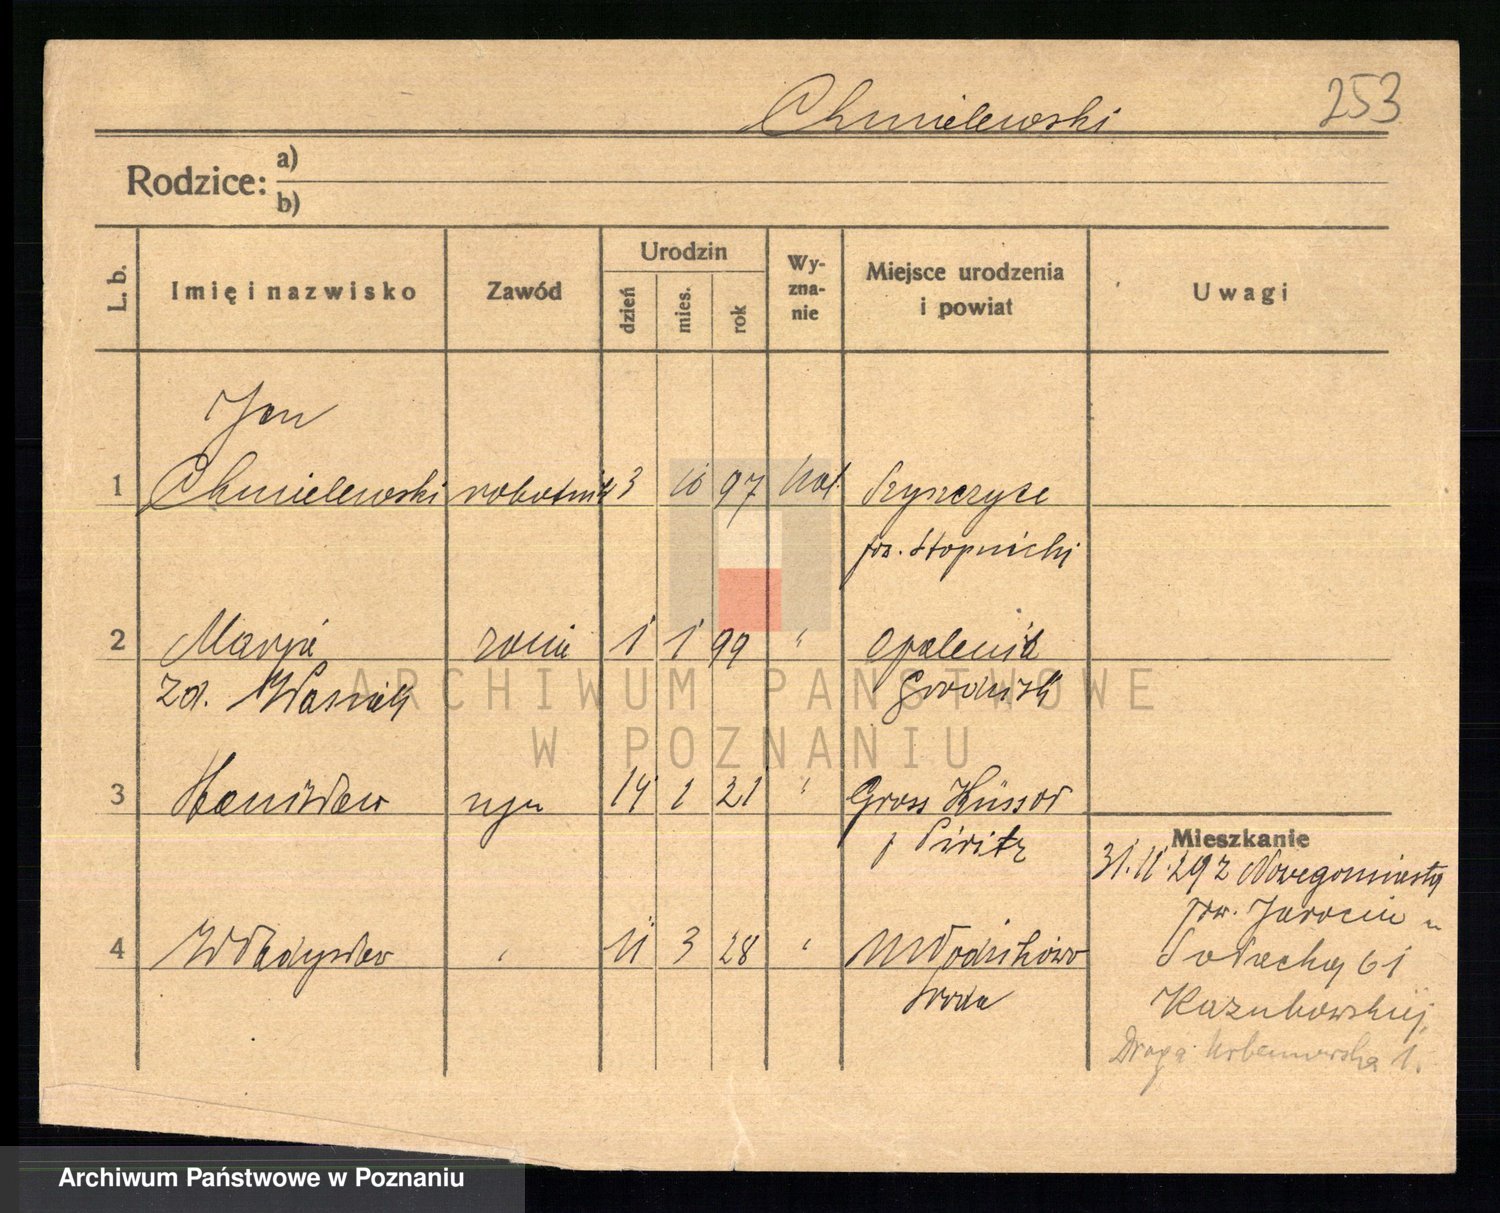 Chmielewski
253
Rodzice: a)
b)
L. b. Imię i nazwisko Zawód Urodzin dzień mies. rok Wy-zna-nie Miejsce urodzenia i powiat Uwagi
Jan
1 Chmielewski robotnik 3 10 97 kat.
pow. Stopnicki
2 Marja żona 1 1 99 " Opalenica
zd. Wasiak Grodzisk
3 Stanisław syn 14 1 21 " Gross
p Piritz
Mieszkanie
31.11.29 z Nowegomiasta
pow. Jarocin
4 Władysław " 11 3 28 " Włodzikowo
Środa
Sołacka 61
Droga Urbanowska 1.
ARCHIWUM PAŃSTWOWE
W POZNANIU
Archiwum Państwowe w Poznaniu